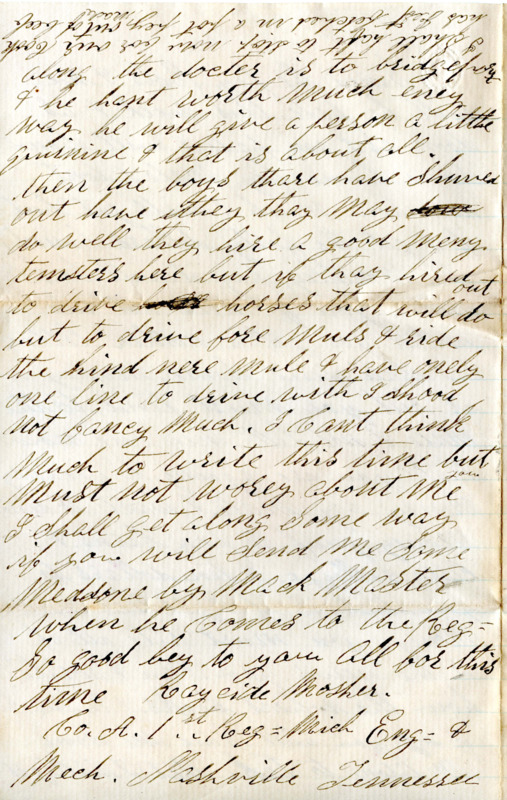 along the docter is to bridgeport
& he hant worth much eney
way he will give a person a little
quinine & that is about all.
then the boys thare have shuved
out have they thay may
do well they hire a good meny
temsters here but if thay hired out
to drive horses that will do
but to drive fore muls & ride
the hind nere mule & have onely
one line to drive with I shood
not fancy much. I cant think
much to write this time but you
must not worey about me
I shall get along some way
if you will send me some
medsone by Mack Master
when he comes to the Reg=
So good bey to you all for this
time Mosher.
Co. A. 1st. Reg= Mich Eng= &
Mech. Nashville Tennessee
I shall haft to stop now for our cook
has just fetched in a pot pey out of beef